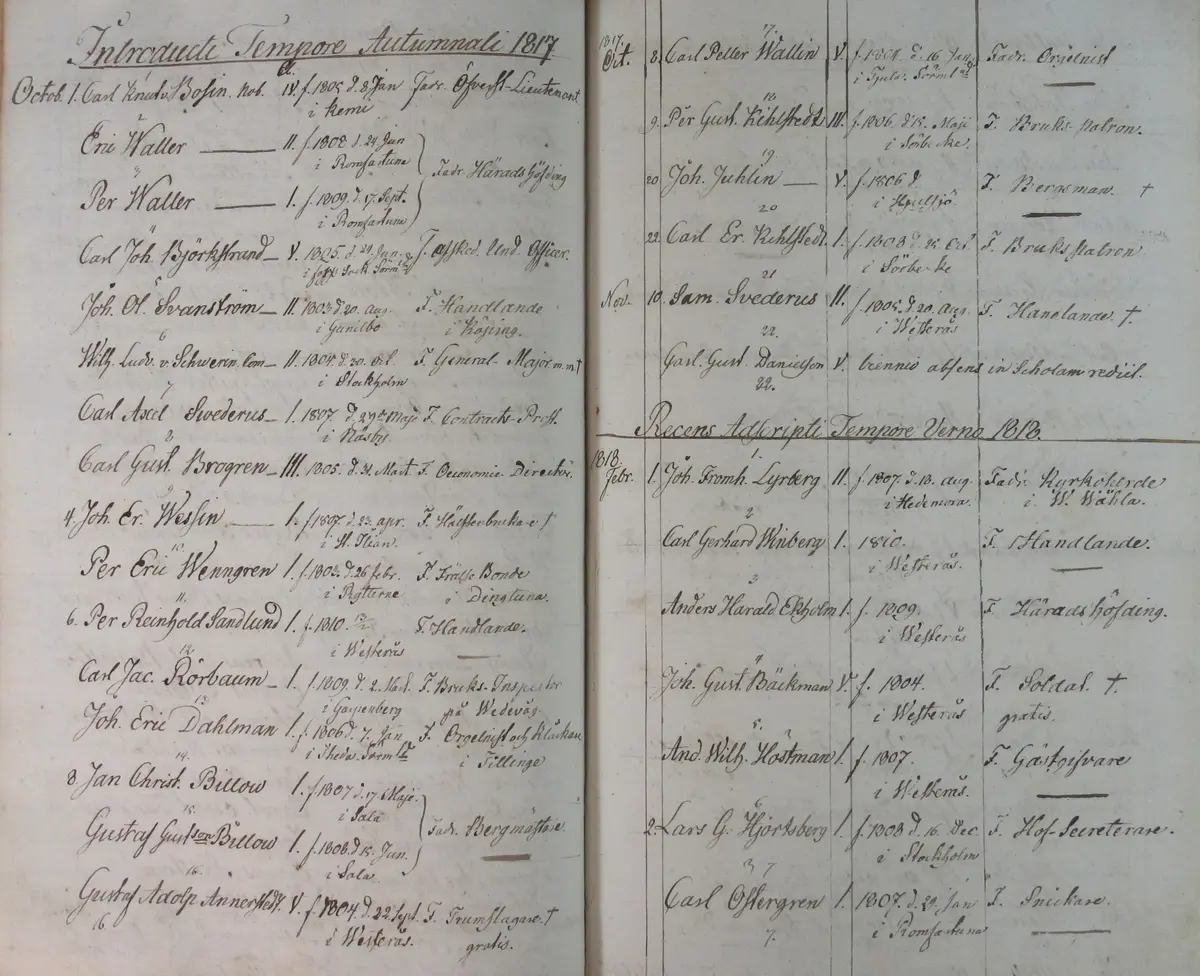 Introducti Tempore Autumnali 1817
Cl.
Octob. 1. Carl Knut v. Bosin. Nob. IV. f. 1805 d. 8 Jan Fadr. Öfverst-Lieutenant
i Remi
2
Eric Waller II. f. 1808 d. 24 Jun
i Romfartuna
Fadr. Härads Höfding
3
Per Waller I. f. 1809. d. 17. Sept.
i Romfartuna
Carl Joh. Björkstrand V. 1805. d. 29. Jun. F. Afsked. Und. Officer.
i Sörml.d
5
Joh. Ol. Svanström II. 1803 d. 20. Aug. F. Handlande
i Gunilbo i Köping.
6
Wilh. Ludv. v. Schwerin Com II. 1804. d. 30. Oct. F. General-Major m.m. †
i Stockholm
7
Carl Axel Swederus I. 1807 d. 29 Maje F. Contracts-Prost.
i Näsby
8
Carl Gust. Brogren III. 1805. d. 31. Mart. F. Oeconomie Directör.
9
4. Joh. Er. Wessin I. f. 1807 d. 23. apr. F. †
10
Per Eric Wenngren I. f. 1803. d. 26 febr. F. Frälse Bonde
i Rytterne i Dingtuna.
11
6. Per Reinhold Sandlund I. f. 1810. F. Handlande.
i Westerås
12
Carl Jac. Rörbaum I. f. 1809. d. 2. F. Bruks-Inspector
i Garpenberg på Wedevåg.
13
Joh. Eric Dahlman I. f. 1806 d. 7. Jan F. Orgelnist och Klåckare
Sörml.d i Tillinge
14.
8. Jan Christ. Billow I. f. 1807 d. 17 Maje.
i Sala
Fadr. Bergmästare.
15
Gustaf Gustson Billow I. f. 1808. d. 15. Jun.
i Sala.
16.
Gustaf Adolp Annerstedt. V. f. 1804. d. 22 Sept. F. Trumslagare. †
16. i Westerås. gratis.
17.
1817.
Oct. 8. Carl Petter Wallin V. f. 1804. d. 16 Jan Fadr. Orgelnist
Sörml.d
18
9. Per Gust. Kihlstedt III. f. 1806. d. 15. Maji F. Bruks-Patron.
i Sörbecke.
19
20 Joh. Juhlin V. f. 1806 d. F. Bergsman. †
i Hjulsjö
20
22. Carl Er. Kihlstedt I. f. 1808 d. 25. Oct. F. Bruks Patron
i Sörbecke
21
Nov. 10. Sam. Svederus II. f. 1805. d. 20. Aug. F. Handlande. †.
i Westerås
22.
Carl. Gust. Danielson V. biennio absens in Scholam rediit.
22.
Recens Adscripti Tempore Verno 1818.
1818. 1.
Febr. 1. Joh. Fromh. Lyrberg II f. 1807. d. 18. aug. Fadr. Kyrkoherde
i Hedemora. i W. Wåhla.
2
Carl Gerhard Winberg I. 1810. F. Handlande.
i Westerås.
3
Anders Harald Ekholm I. f. 1809. F. Härads höfding.
i Westerås
4
Joh. Gust. Bäckman V. f. 1804. F. Soldat †.
i Westerås gratis.
5.
And. Wilh. Höstman I. f. 1807. F. Gästgifvare
i Westerås.
6
2. Lars G. Hjortsberg I. f. 1808 d. 16. Dec. F. Hof-Secreterare.
i Stockholm
7
Carl Ostergren I. 1807. d. 29. Jan F. Snickare.
7. i Romfartuna